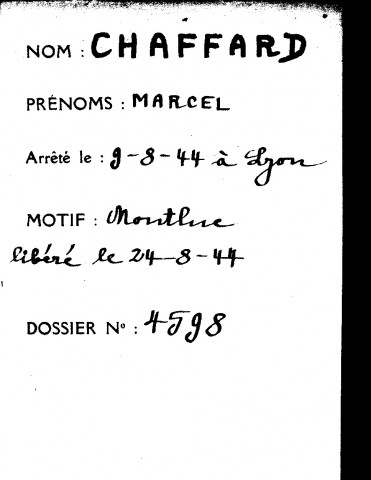 NOM : CHAFFARD
PRÉNOMS : MARCEL
Arrêté le : 9-8-44 à Lyon
MOTIF : Montluc
libéré le 24-8-44
DOSSIER Nº : 4598